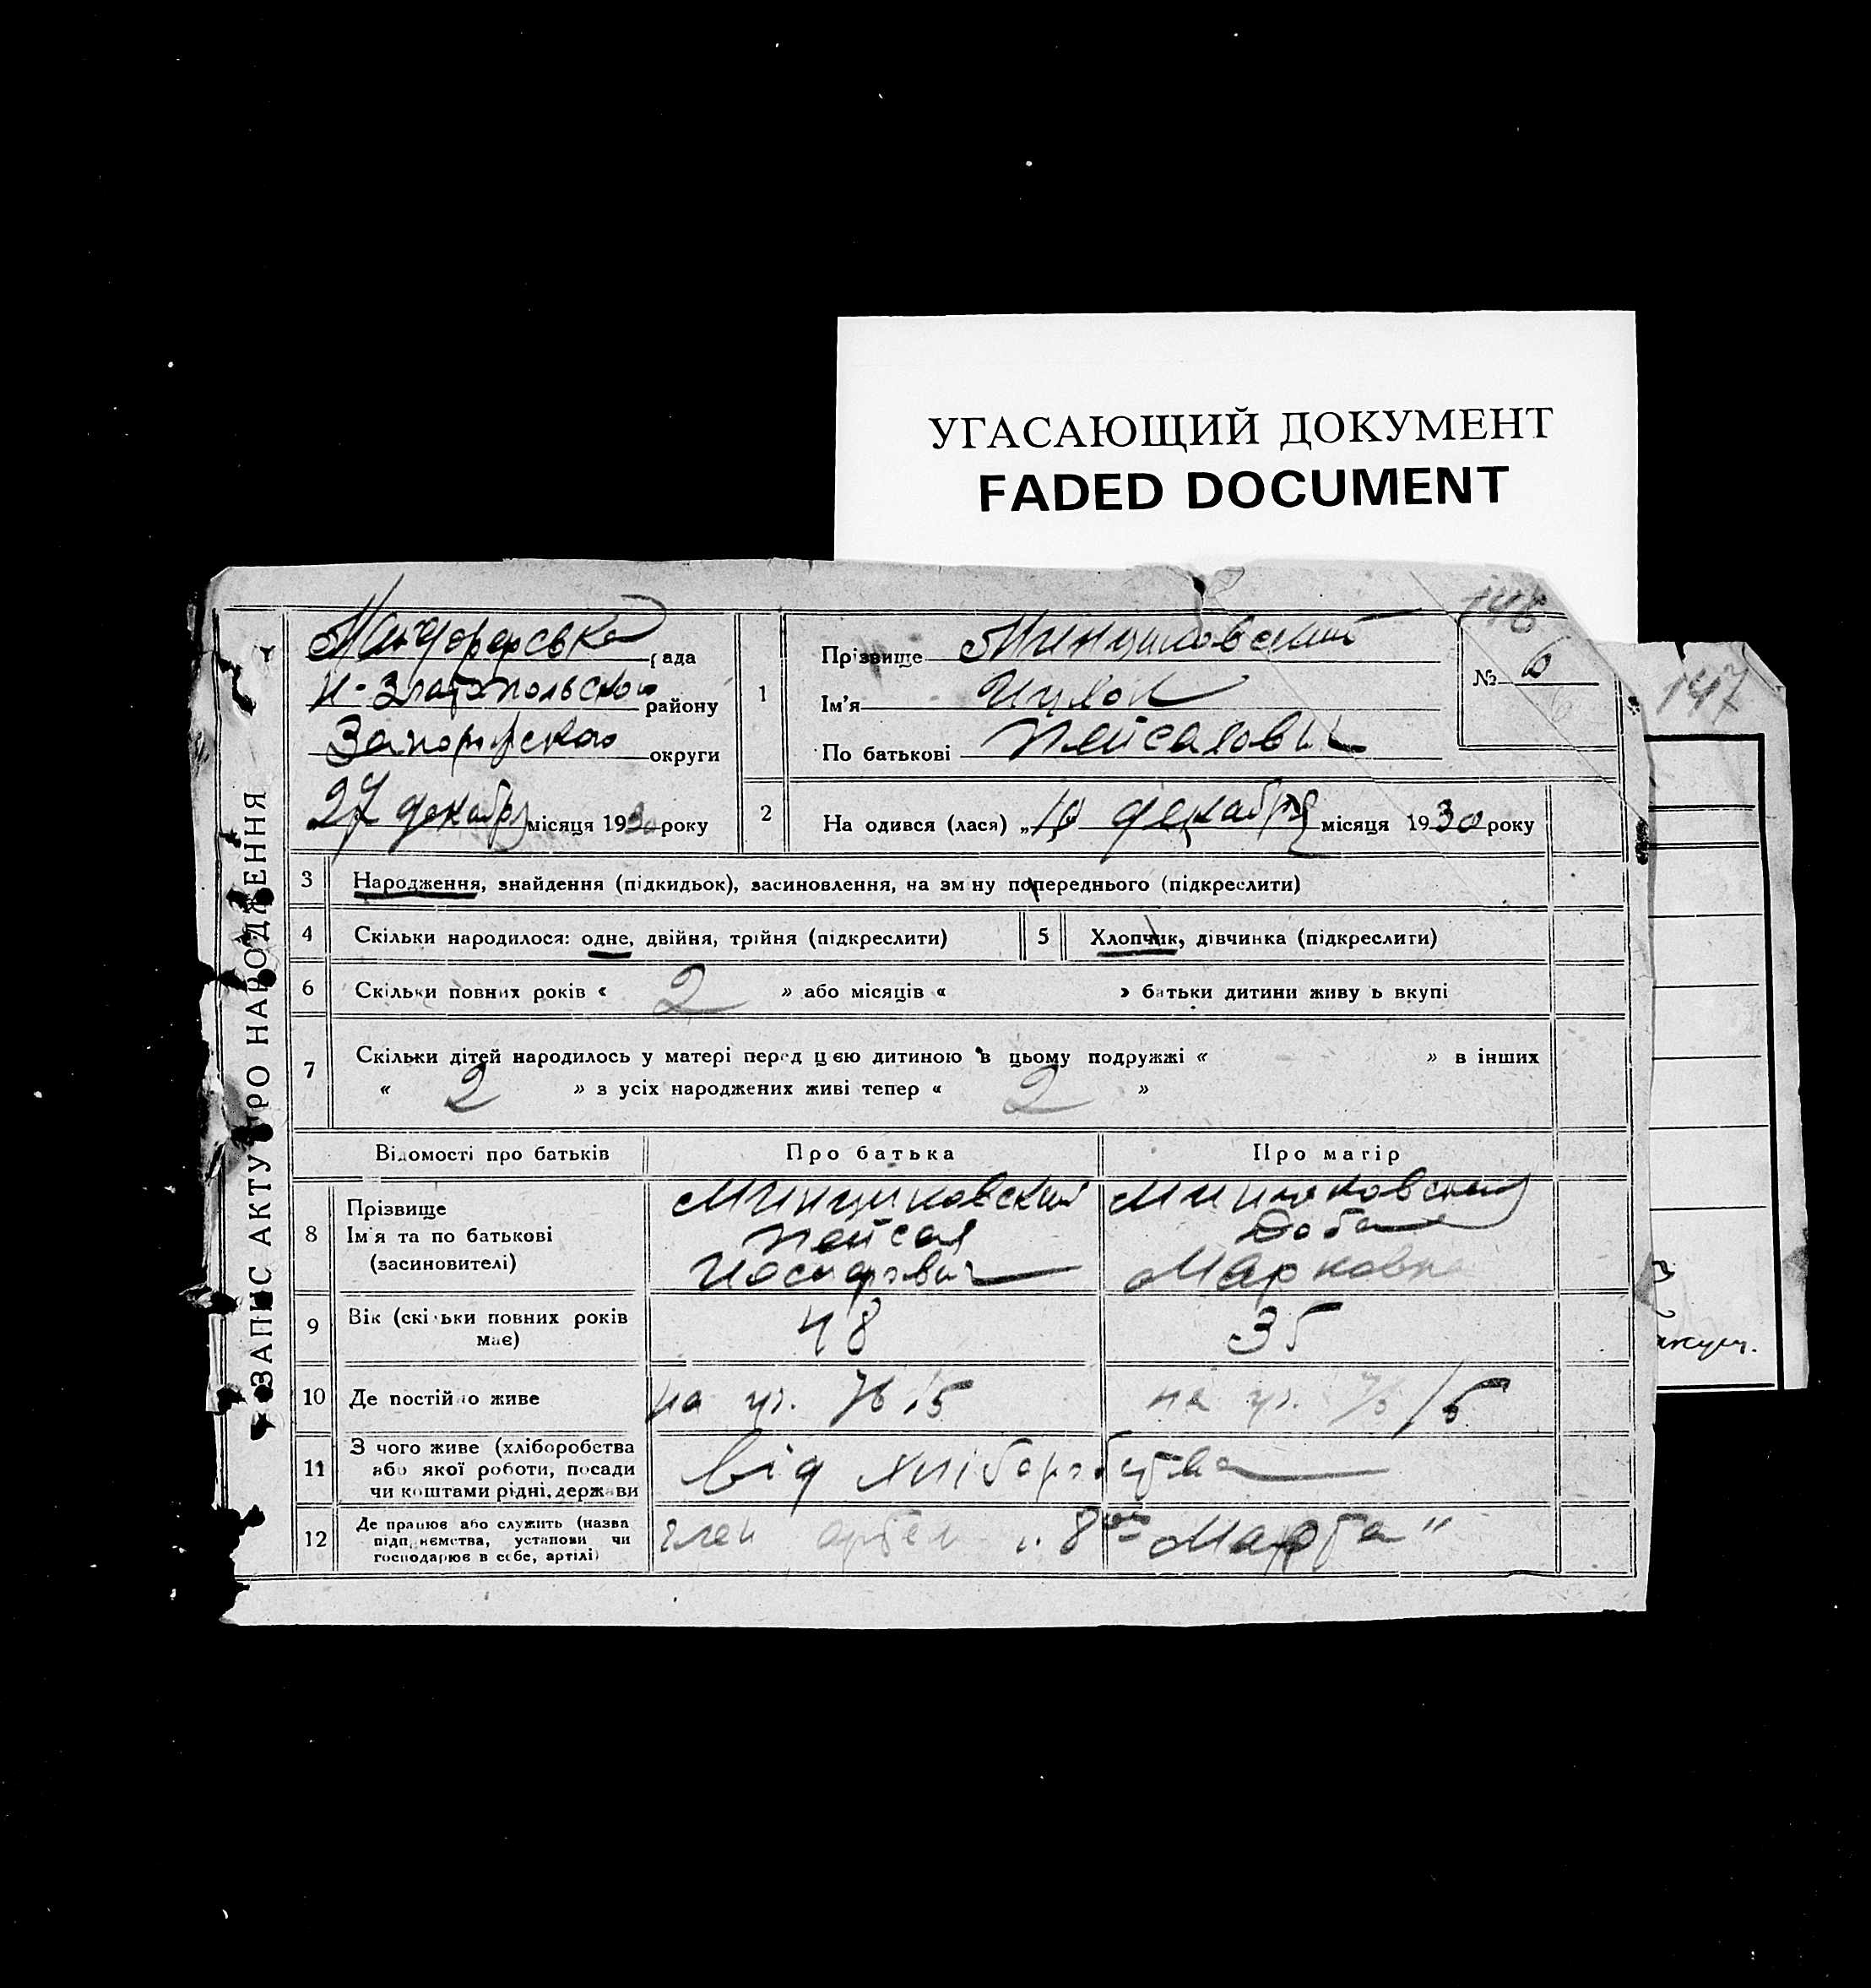 УГАСАЮЩИЙ ДОКУМЕНТ
FADED DOCUMENT
148
147
ЗАПИС АКТУ ПРО НАРОДЖЕННЯ
рада
Н-Златопольского району
округи
27 декабря місяця 1930 року
1
Прізвище
Ім'я Ицхок
По батькові Пейсахович
№ 6
2 На одився (лася) „10 декабря місяця 1930 року
3 Народження, знайдення (підкидьок), засиновлення, на зм ну попереднього (підкреслити)
4 Скільки народилося: одне, двійня, трійня (підкреслити)
5 Хлопчик, дівчинка (підкреслити)
6 Скільки повних років « 2 » або місяців « » батьки дитини живу ь вкупі
7 Скільки дітей народилось у матері перед цією дитиною в цьому подружжі « » в інших
« 2 » з усіх народжених живі тепер « 2 »
Відомості про батьків
Про батька
Про матір
8 Прізвище
Ім'я та по батькові
(засиновителі)
Пейсах
Иосифович
Марковна
9 Вік (скільки повних років
має)
48
35
10 Де постійно живе
на уч.
на уч.
11 З чого живе (хліборобства
або якої роботи, посади
чи коштами рідні, держави
від хліборобства
12 Де працює або служить (назва
підп иємства, установи чи
господарює в себе, артілі)
член артели „8го Марта"